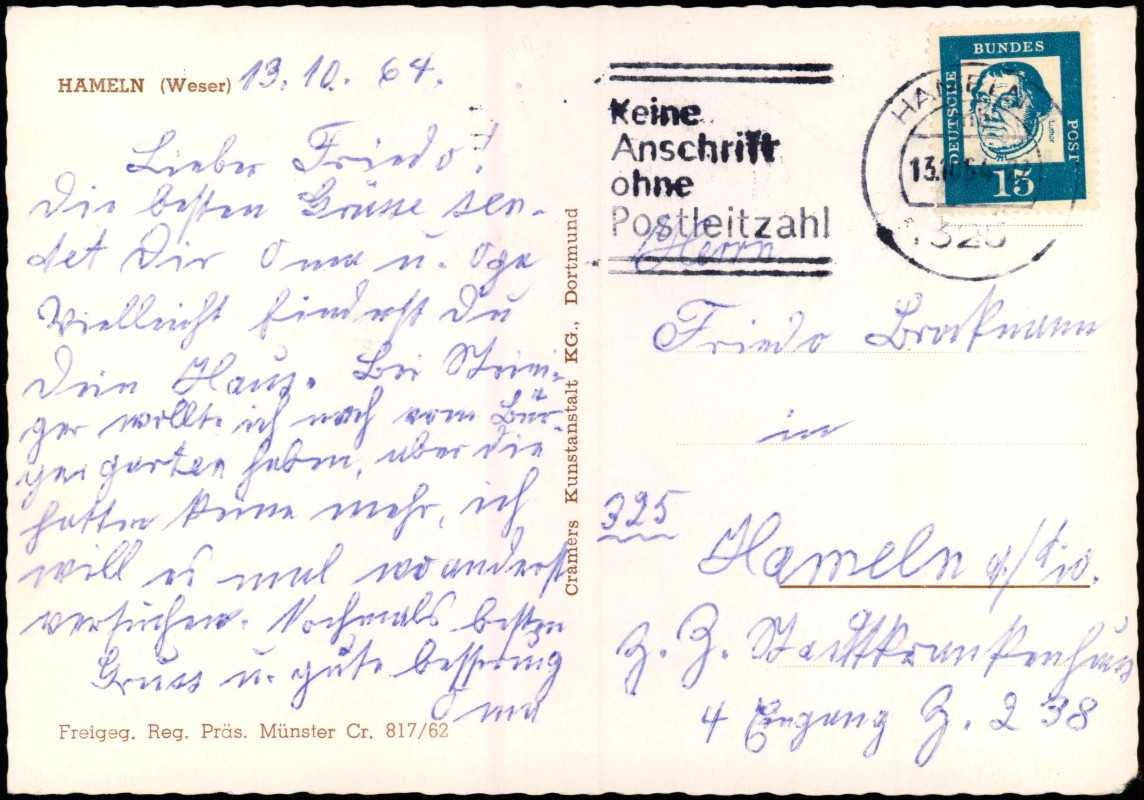 HAMELN (Weser) 13.10.64.
Lieber Friedo!
Die besten Grüsse sen-
det Dir Oma u. Opa
Vielleicht findest Du
Dein Haus. Bei
ger wollte ich noch vom Bür-
gergarten haben, aber die
hatten keine mehr, ich
will es mal woanderst
versuchen. Nochmals besten
Gruss u. gute besserung
Oma
Freigeg. Reg. Präs. Münster Cr. 817/62
Cramers Kunstanstalt KG., Dortmund
Keine
Anschrift
ohne
Postleitzahl
HAMELN
13.10.64
325
DEUTSCHE BUNDES POST
Luther
15
Herrn
Friedo Brockmann
in
325
Hameln
z. Z. Stadtkrankenhaus
4 Eingang Z. 238